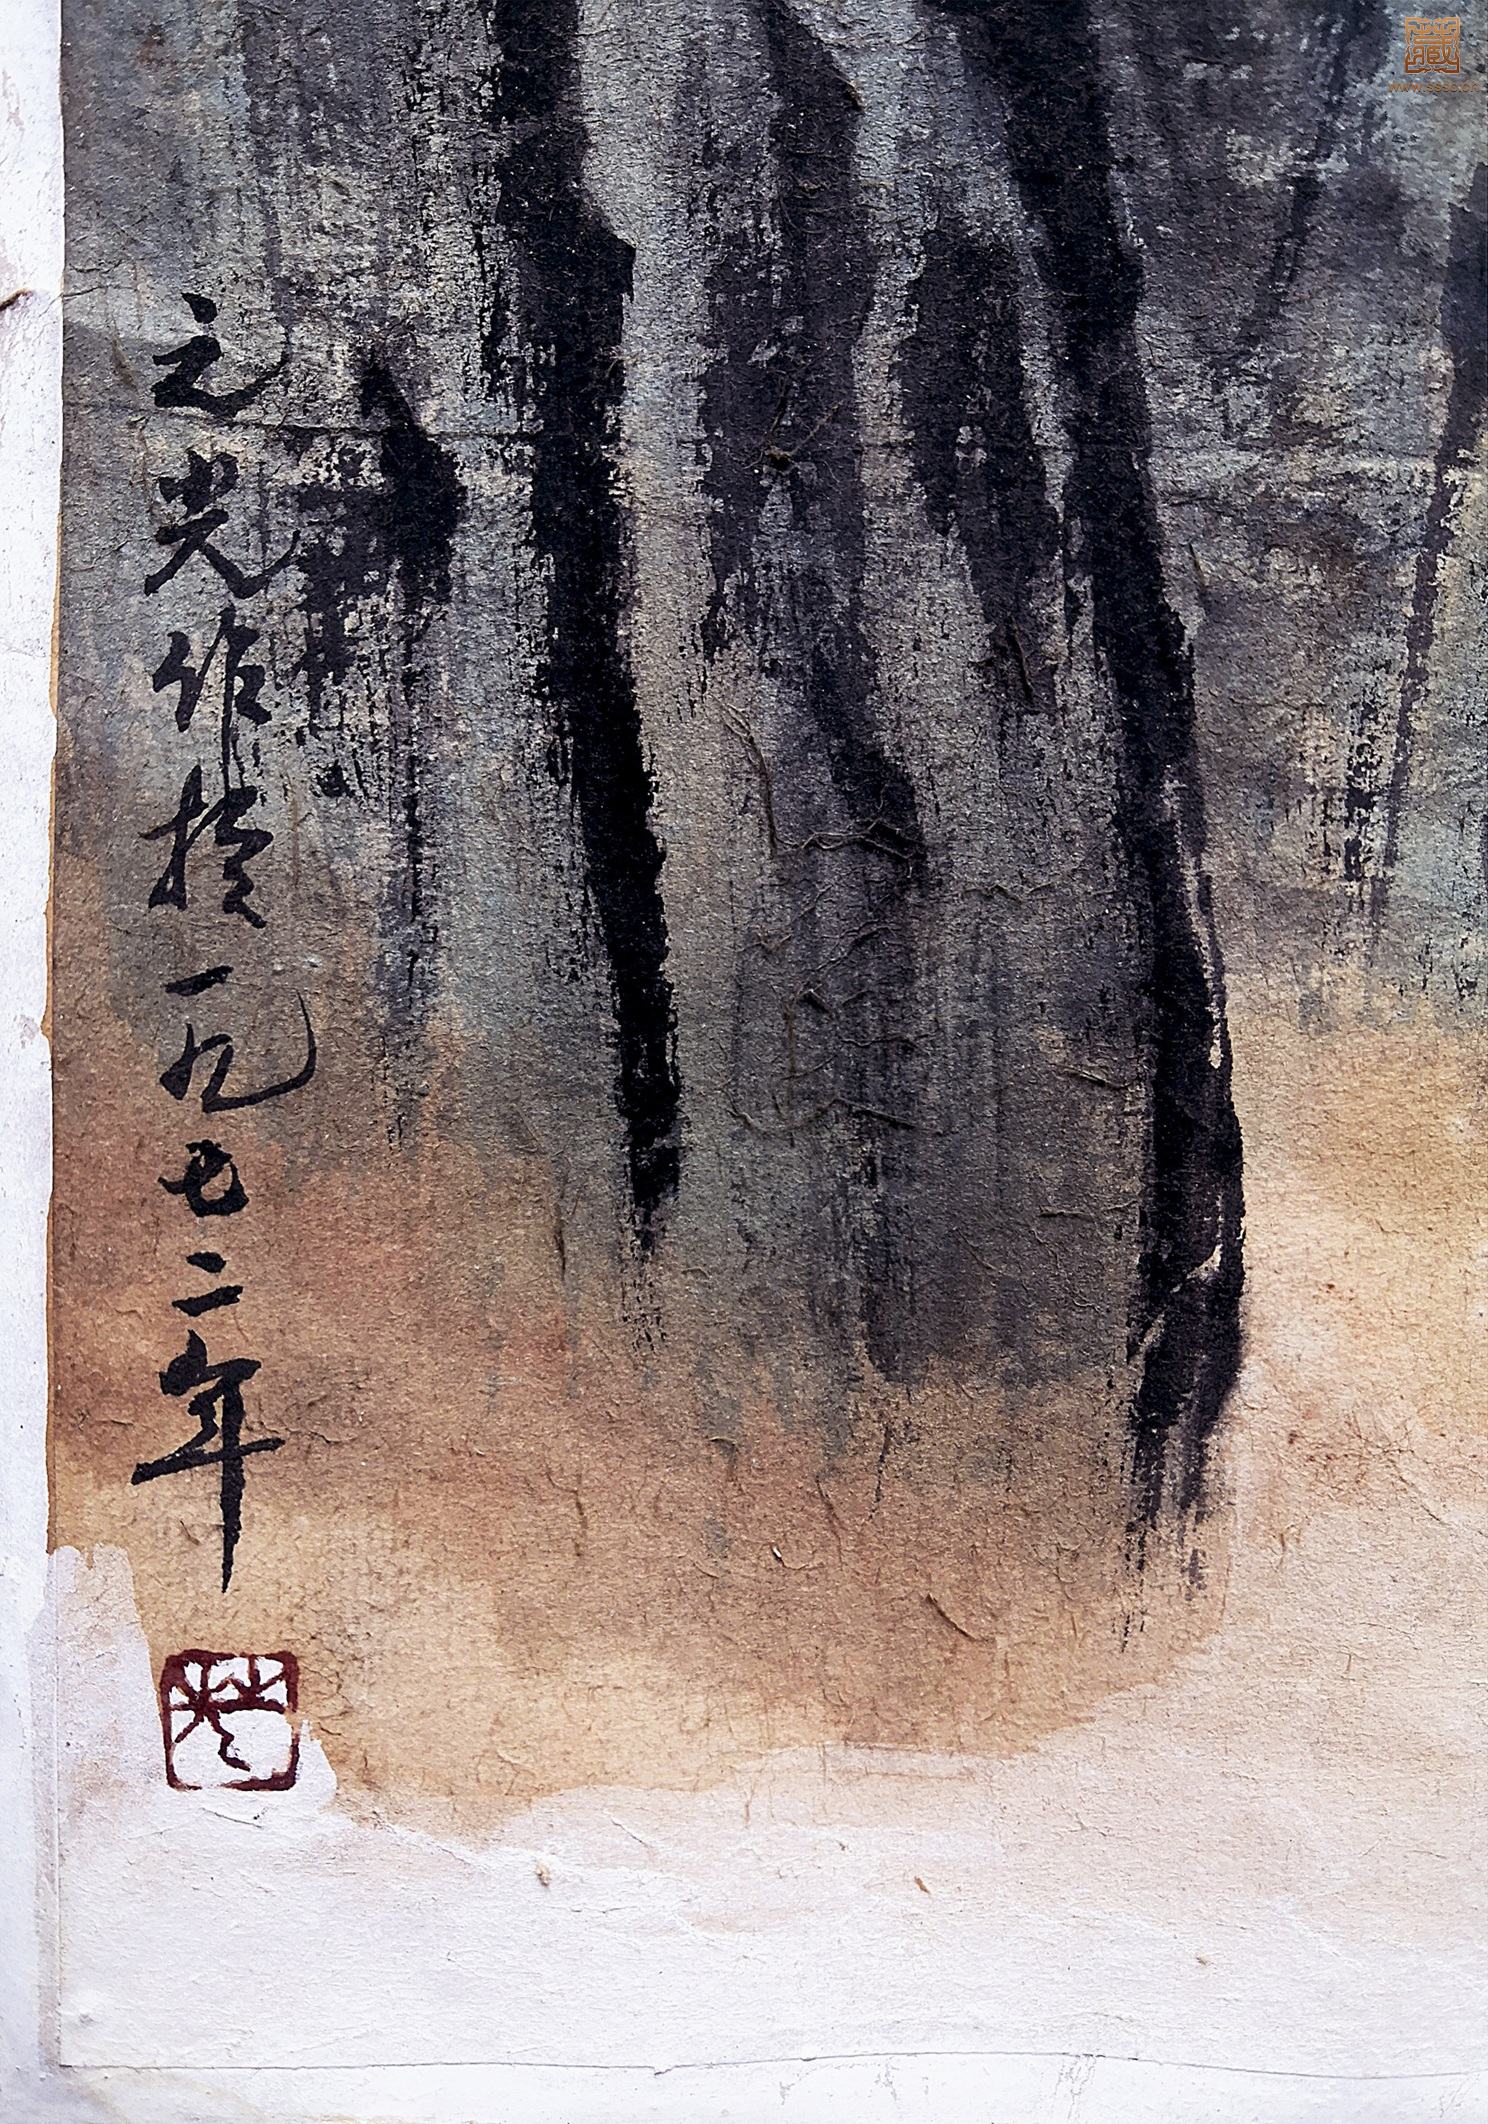 之光作於一九七二年
之光
藏
www.ssss.cn